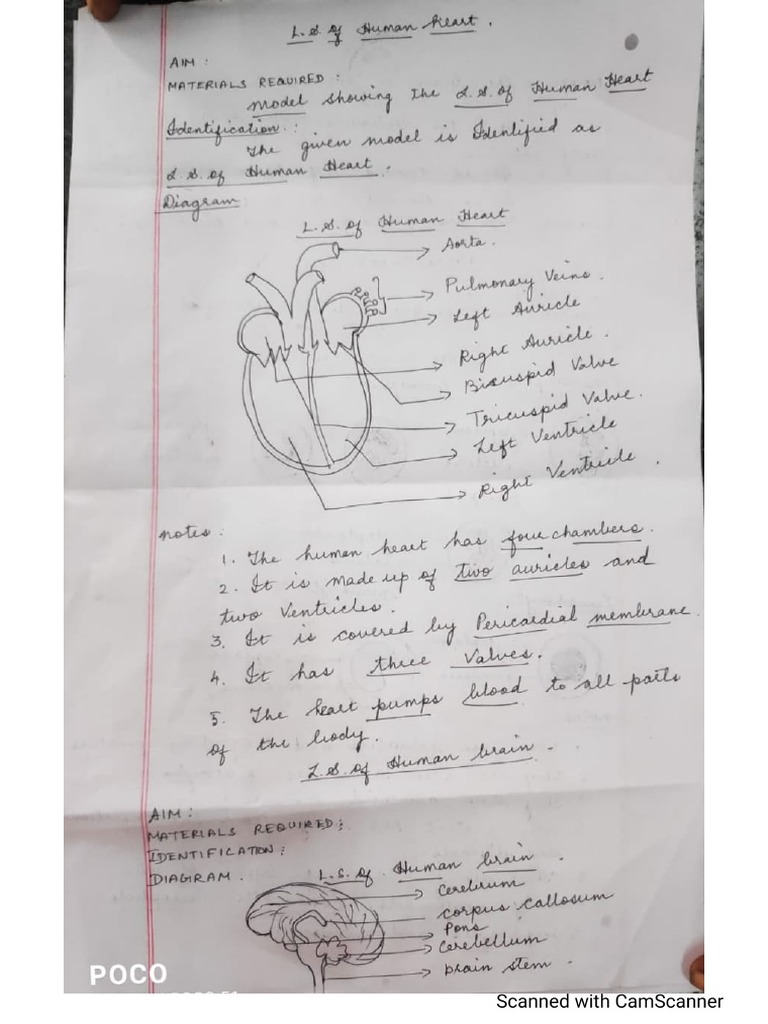 L.S. of Human heart.
AIM :
MATERIALS REQUIRED :
model showing the L.S. of Human Heart
Identification :
The given model is Identified as
L.S. of Human Heart.
Diagram
L.S. of Human Heart
Aorta.
Pulmonary Veins.
Left Auricle
Right Auricle.
Bicuspid Valve
Tricuspid Valve.
Left Ventricle
Right Ventricle.
notes :
1. The human heart has four chambers.
2. It is made up of two auricles and
two Ventricles.
3. It is covered by Pericardial membrane.
4. It has three Valves.
5. The heart pumps blood to all parts
of the body.
L.S. of Human brain.
AIM :
MATERIALS REQUIRED :
IDENTIFICATION :
DIAGRAM.
L.S. of Human brain.
Cerebrum
corpus callosum
Pons
Cerebellum
brain stem.
POCO
Scanned with CamScanner